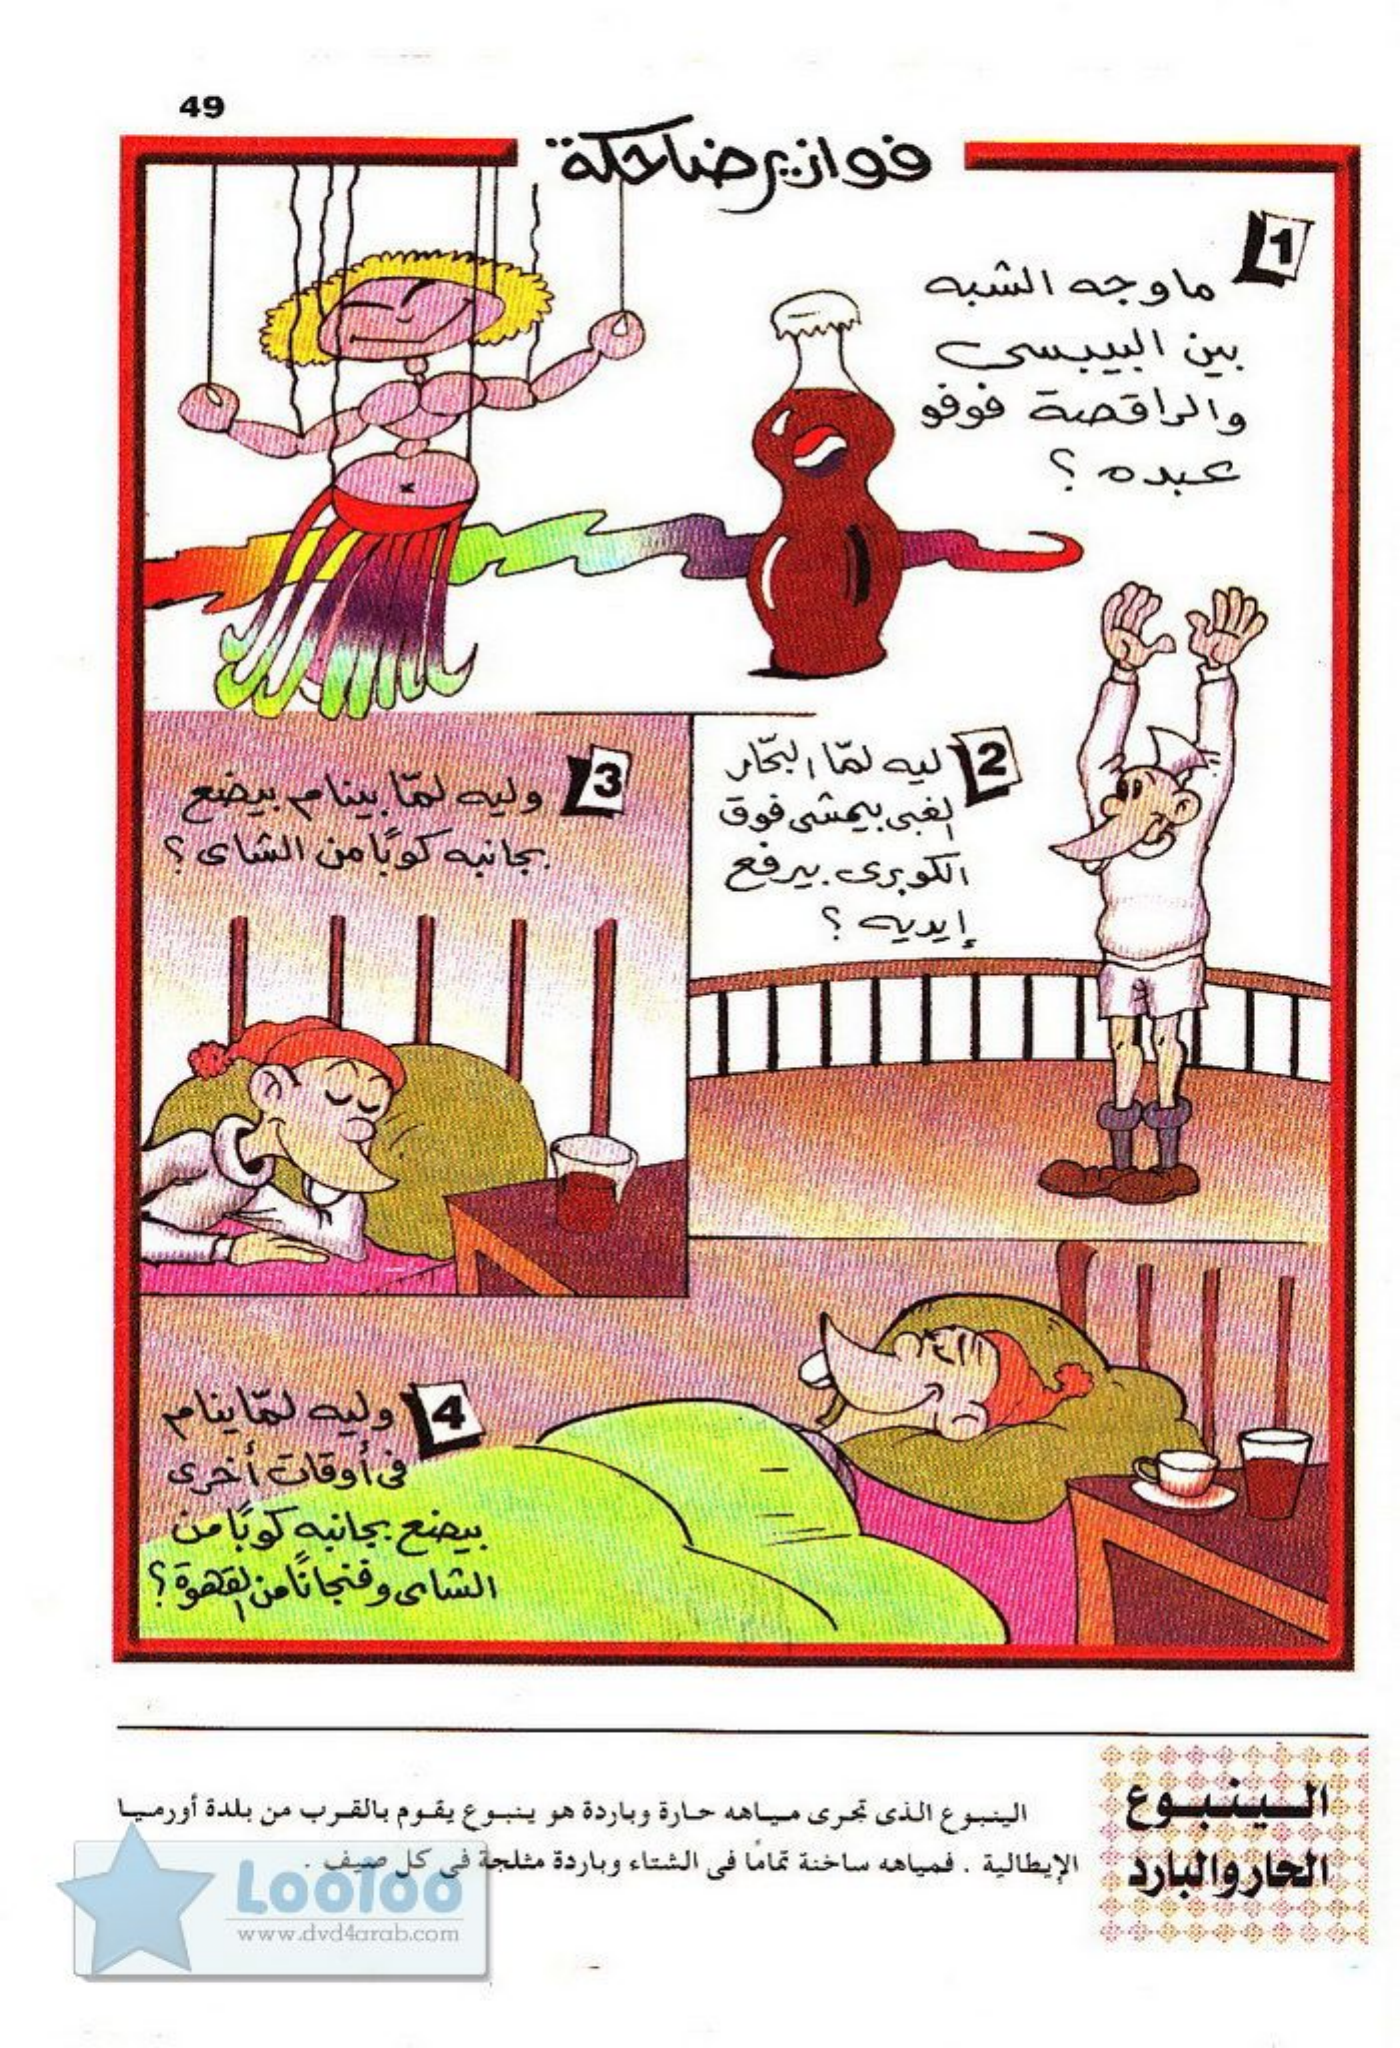 49
فوازير ضاحكة
1
ما وجه الشبه
بين البيبسى
والراقصة فوفو
عبده ؟
2
ليه لمّا البحّار
الغبى بيمشى فوق
الكوبرى بيرفع
إيديه ؟
3
وليه لمّا بينام بيضع
بجانبه كوبًا من الشاى ؟
4
وليه لمّا ينام
فى أوقات أخرى
بيضع بجانبه كوبًا من
الشاى وفنجانًا من القهوة ؟
الينبوع
الحار والبارد
الينبوع الذى تجرى مياهه حارة وباردة هو ينبوع يقوم بالقرب من بلدة أورميا
الإيطالية . فمياهه ساخنة تمامًا فى الشتاء وباردة مثلجة فى كل صيف .
Looloo
www.dvd4arab.com